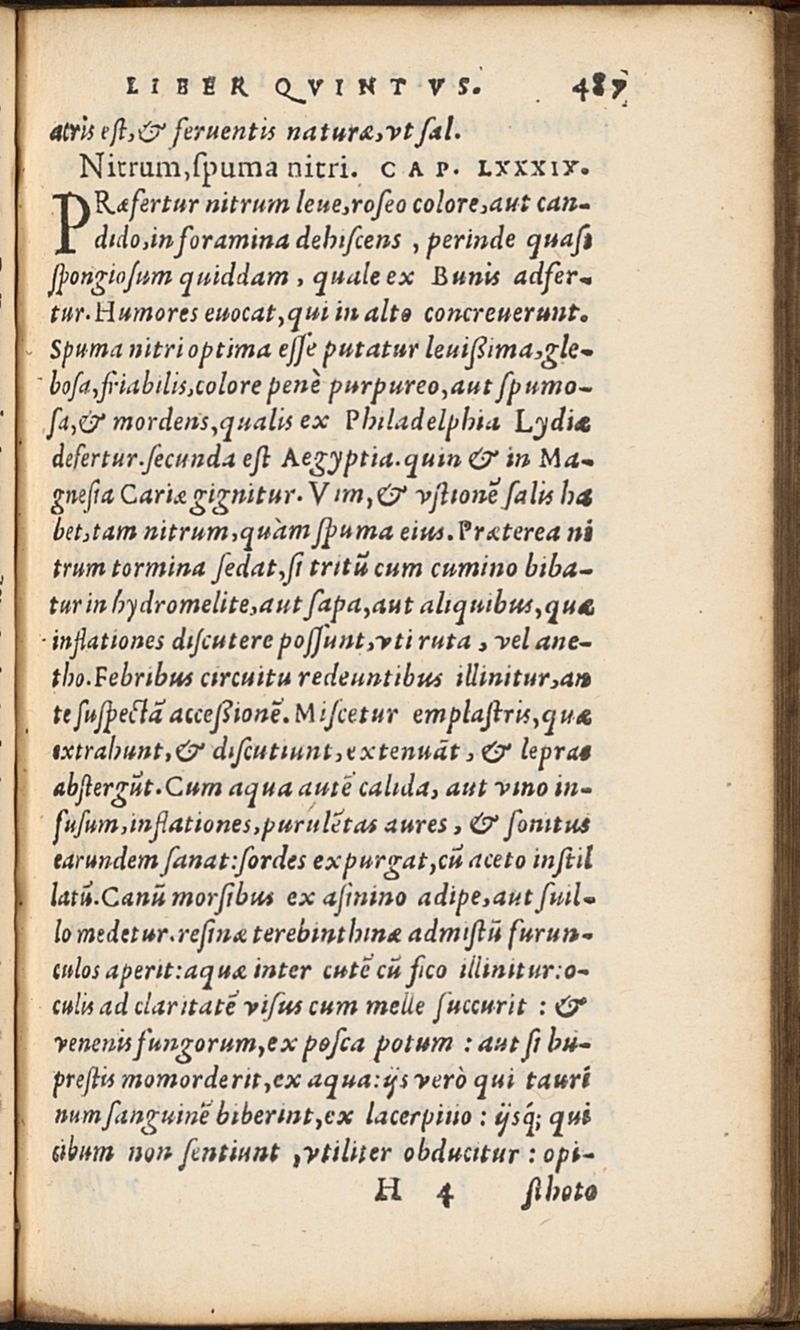 LIBER QVINTVS. 487
acris est, & feruentis naturæ, vt sal.
Nitrum, spuma nitri. CAP. LXXXIX.
PRæfertur nitrum leue, roseo colore, aut can-
dido, in foramina dehiscens, perinde quasi
spongiosum quiddam, quale ex Bunis adfer-
tur. Humores euocat, qui in alto concreuerunt.
Spuma nitri optima esse putatur leuißima, gle-
bosa, friabilis, colore penè purpureo, aut spumo-
sa, & mordens, qualis ex Philadelphia Lydiæ
defertur. secunda est Aegyptia. quin & in Ma-
gnesia Cariæ gignitur. Vim, & vstionē salis ha
bet, tam nitrum, quàm spuma eius. Præterea ni
trum tormina sedat, si tritū cum cumino biba-
tur in hydromelite, aut sapa, aut aliquibus, quæ
inflationes discutere possunt, vti ruta, vel ane-
tho. Febribus circuitu redeuntibus illinitur, an
te suspectā acceßionē. Miscetur emplastris, quæ
extrahunt, & discutiunt, extenuāt, & lepras
abstergūt. Cum aqua autē calida, aut vino in-
fusum, inflationes, purulētas aures, & sonitus
earundem sanat: sordes expurgat, cū aceto instil
latū. Canū morsibus ex asinino adipe, aut suil-
lo medetur. resinæ terebinthinæ admistū furun-
culos aperit: aquæ inter cutē cū fico illinitur: o-
culis ad claritatē visus cum melle succurit: &
venenis fungorum, ex posca potum: aut si bu-
prestis momorderit, ex aqua: ijs verò qui tauri
num sanguinē biberint, ex lacerpitio: ijsq́; qui
cibum non sentiunt, vtiliter obducitur: opi-
H 4 sthoto